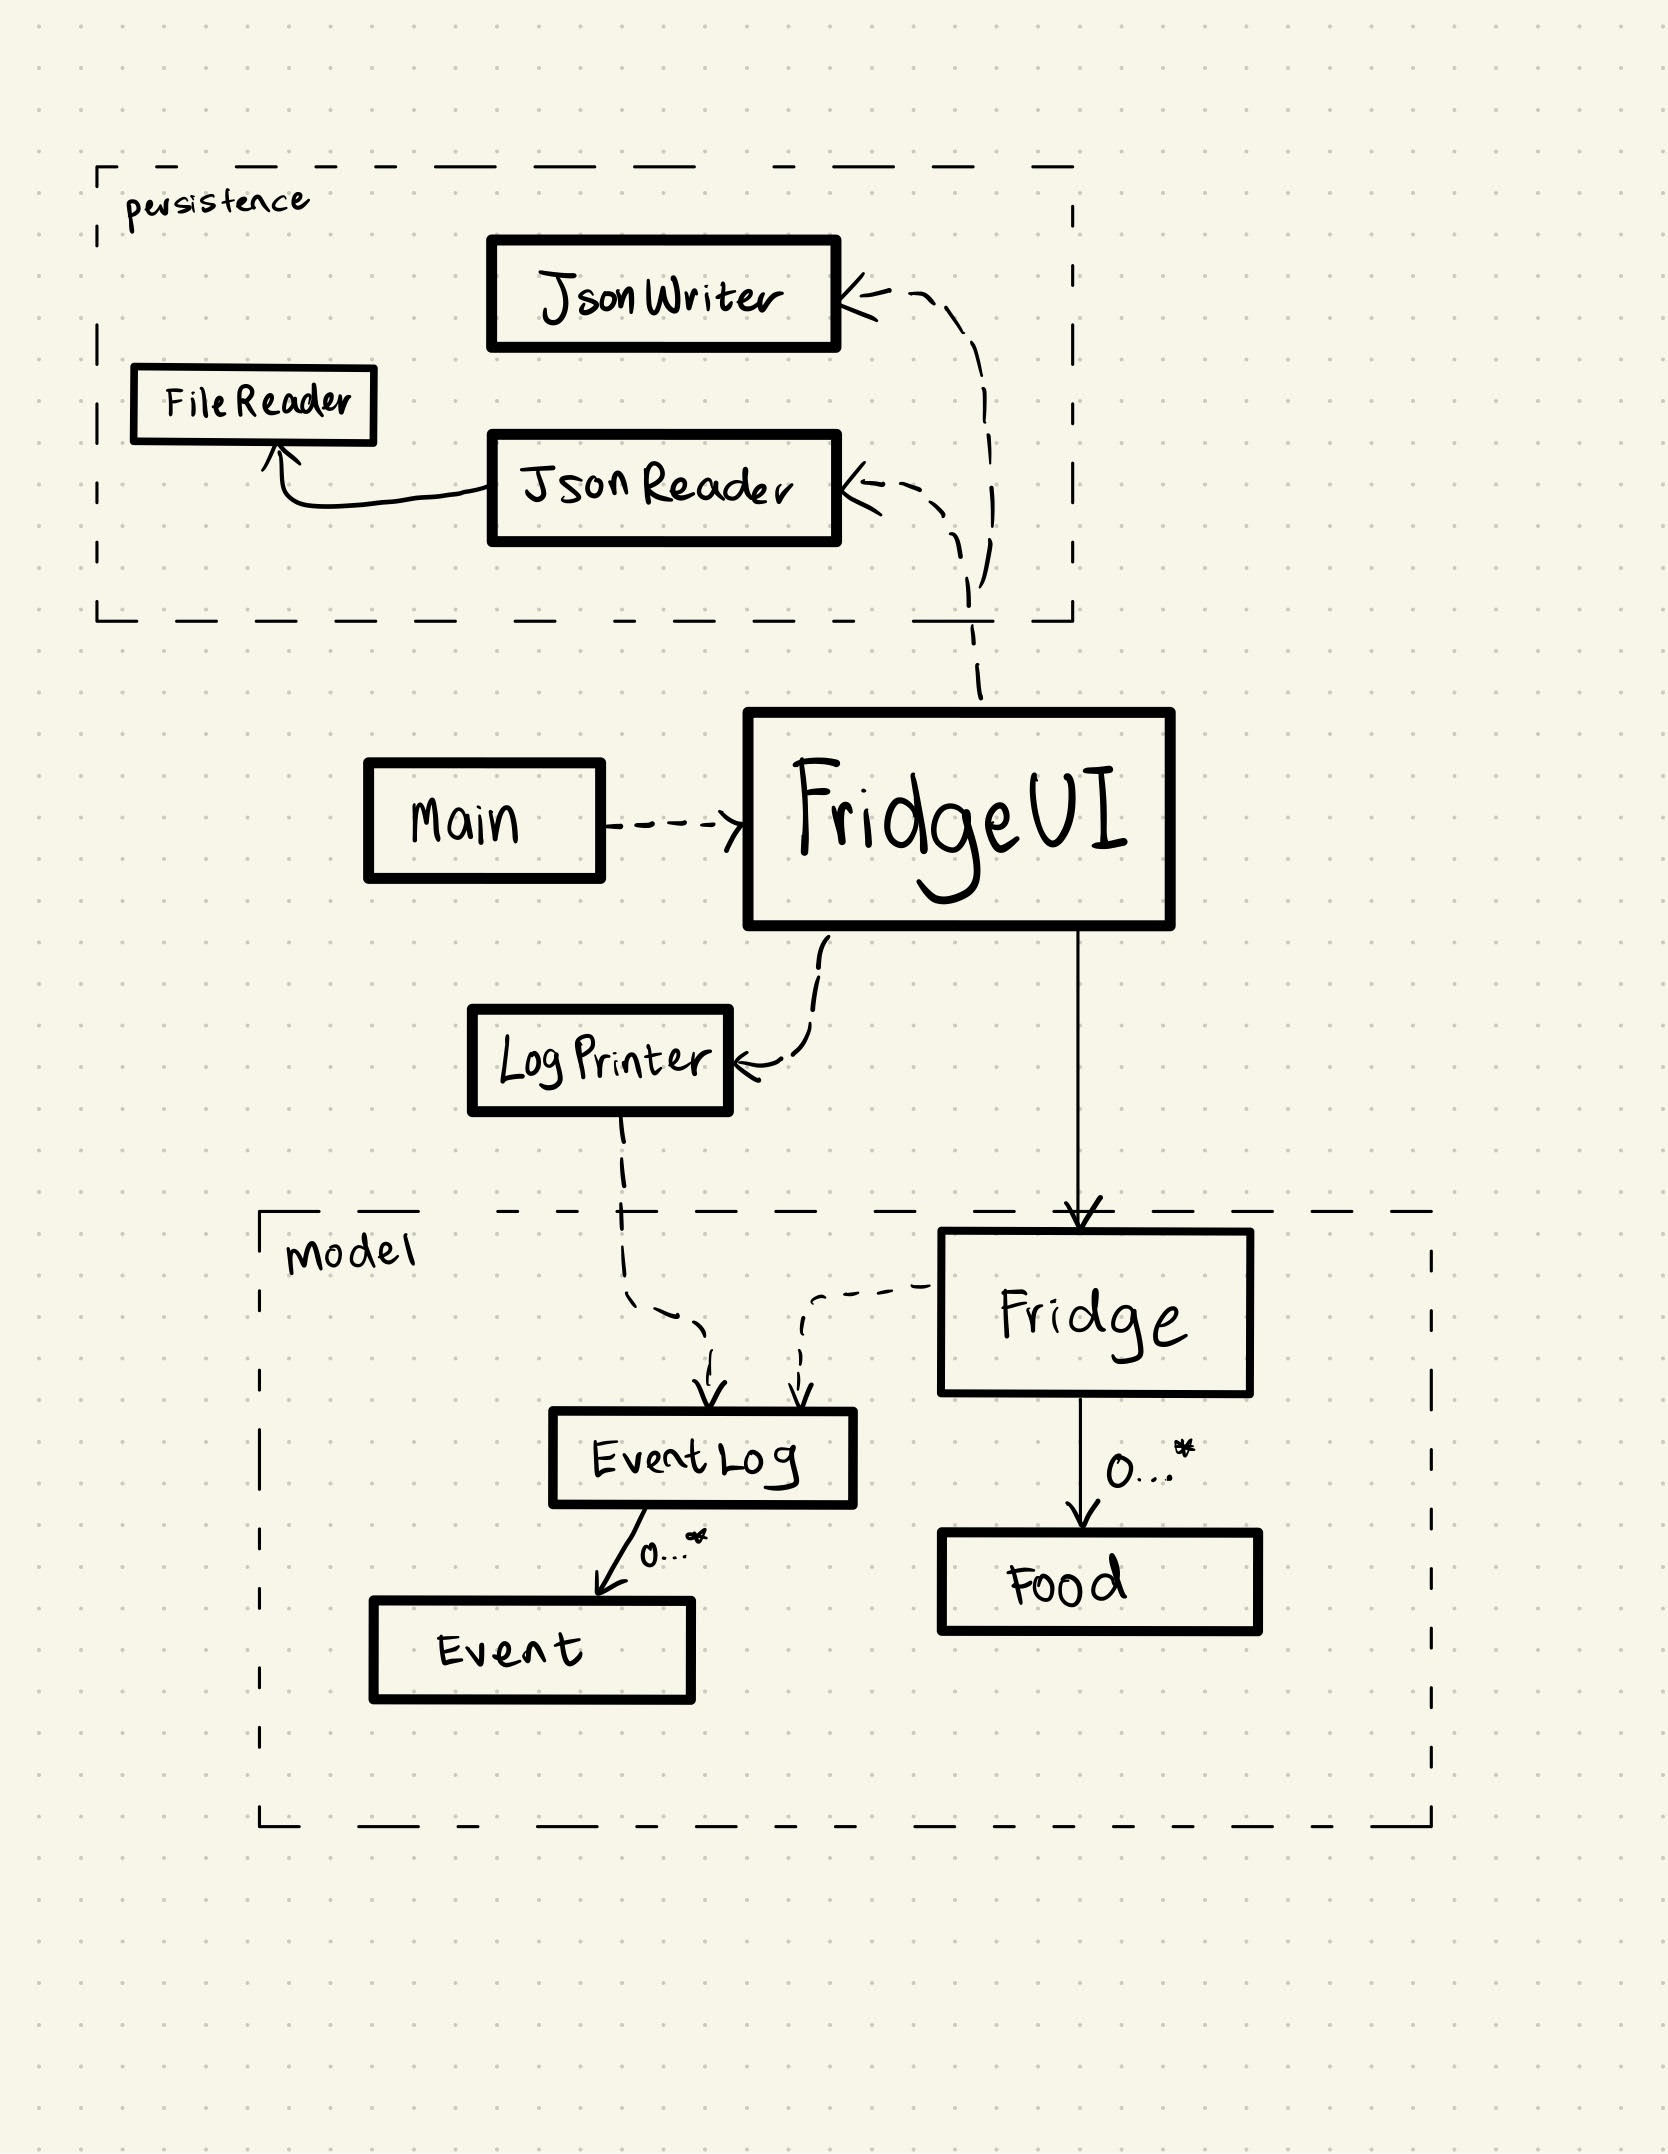 persistence
JsonWriter
FileReader
JsonReader
FridgeUI
Main
LogPrinter
model
Fridge
EventLog
0...*
0...*
Food
Event